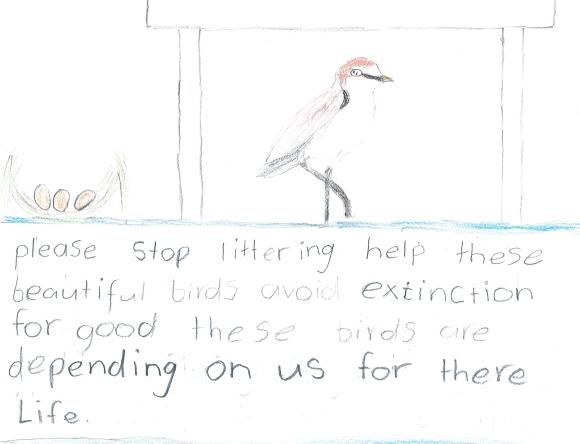 please stop littering help these
beautiful birds avoid extinction
for good these birds are
depending on us for there
Life.